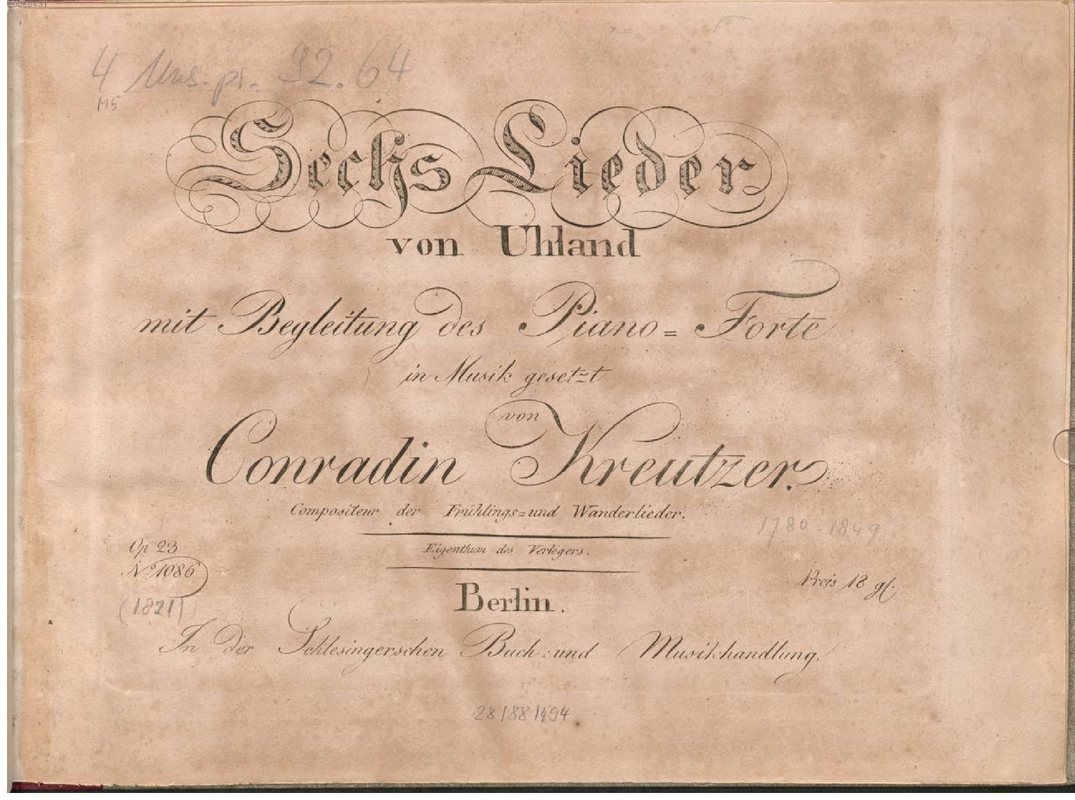 4 Mus. pr. 92.64
M5
Sechs Lieder
von Uhland
mit Begleitung des Piano=Forte
in Musik gesetzt
von
Conradin Kreutzer.
Compositeur der Frühlings=und Wanderlieder.
1780-1849
Eigenthum des Verlegers.
Op 23
No 1086
Preis 18 gl.
(1821)
Berlin.
In der Schlesingerschen Buch=und Musikhandlung.
28/88/494